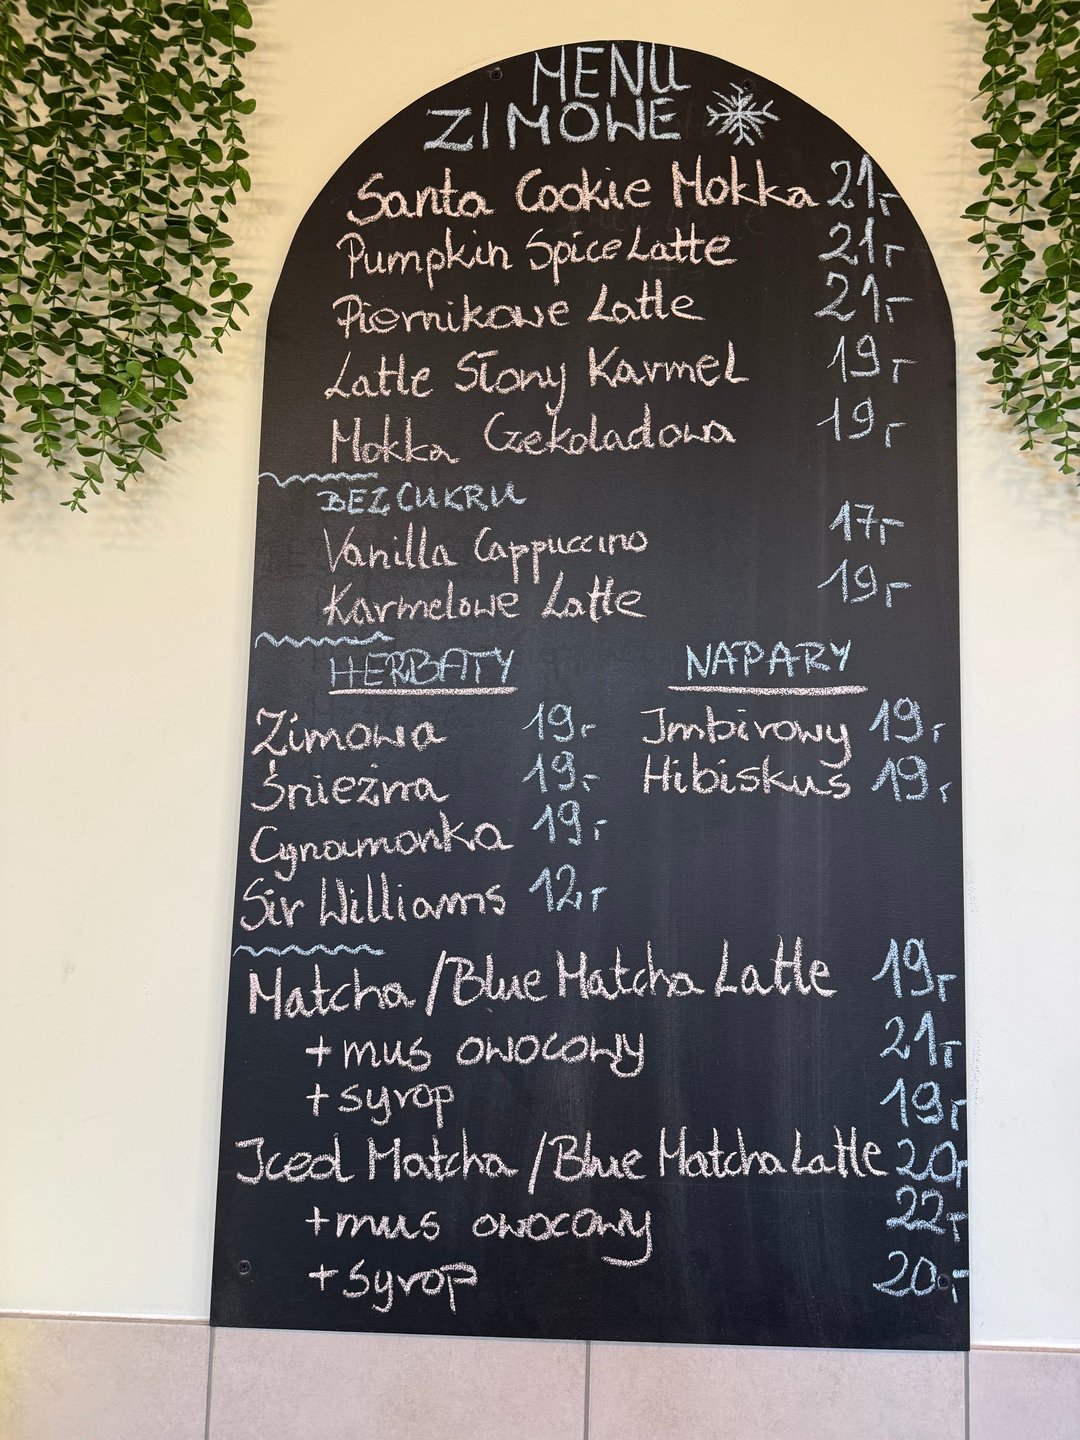 MENU
ZIMOWE
Santa Cookie Mokka 21,-
Pumpkin Spice Latte 21,-
Piernikowe Latte 21,-
Latte Słony Karmel 19,-
Mokka Czekoladowa 19,-
BEZ CUKRU
Vanilla Cappuccino 17,-
Karmelowe Latte 19,-
HERBATY
Zimowa 19,-
Śnieżna 19,-
Cynamonka 19,-
Sir Williams 12,-
NAPARY
Imbirowy 19,-
Hibiskus 19,-
Matcha / Blue Matcha Latte 19,-
+ mus owocowy 21,-
+ syrop 19,-
Iced Matcha / Blue Matcha Latte 20,-
+ mus owocowy 22,-
+ syrop 20,-